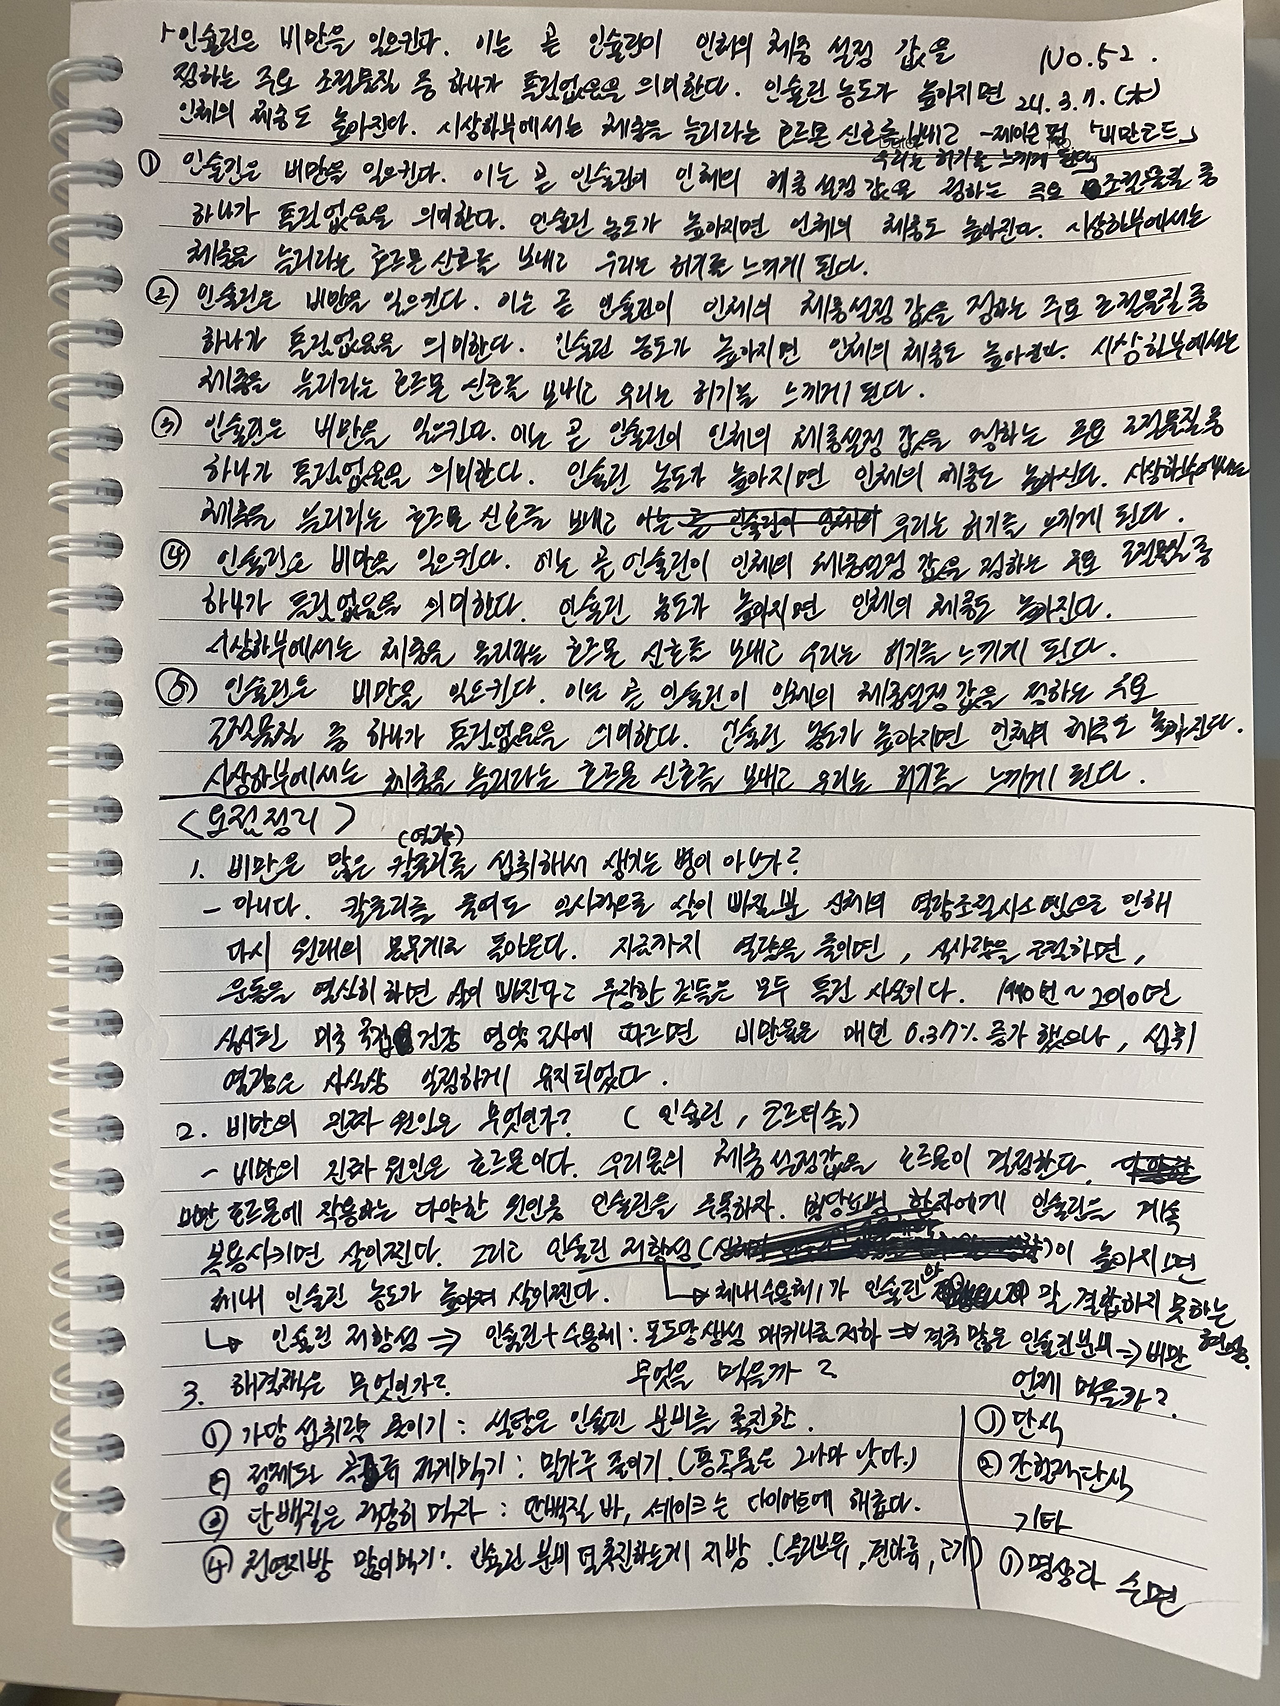 인슐린은 비만을 일으킨다. 이는 곧 인슐린이 인체의 체중 설정 값을
NO.52.
정하는 주요 조절물질 중 하나가 틀림없음을 의미한다. 인슐린 농도가 높아지면
24.3.7.(木)
인체의 체중도 높아진다. 시상하부에서는 체중을 늘리라는 호르몬 신호를 보내고
우리는 허기를 느끼게 된다.
-제이슨 펑 「비만코드」
① 인슐린은 비만을 일으킨다. 이는 곧 인슐린이 인체의 체중설정 값을 정하는 주요 조절물질 중
하나가 틀림없음을 의미한다. 인슐린 농도가 높아지면 인체의 체중도 높아진다. 시상하부에서는
체중을 늘리라는 호르몬 신호를 보내고 우리는 허기를 느끼게 된다.
② 인슐린은 비만을 일으킨다. 이는 곧 인슐린이 인체의 체중설정 값을 정하는 주요 조절물질 중
하나가 틀림없음을 의미한다. 인슐린 농도가 높아지면 인체의 체중도 높아진다. 시상하부에서는
체중을 늘리라는 호르몬 신호를 보내고 우리는 허기를 느끼게 된다.
③ 인슐린은 비만을 일으킨다. 이는 곧 인슐린이 인체의 체중설정 값을 정하는 주요 조절물질 중
하나가 틀림없음을 의미한다. 인슐린 농도가 높아지면 인체의 체중도 높아진다. 시상하부에서는
체중을 늘리라는 호르몬 신호를 보내고 이는 곧 인슐린이 인체의 우리는 허기를 느끼게 된다.
④ 인슐린은 비만을 일으킨다. 이는 곧 인슐린이 인체의 체중설정 값을 정하는 주요 조절물질 중
하나가 틀림없음을 의미한다. 인슐린 농도가 높아지면 인체의 체중도 높아진다.
시상하부에서는 체중을 늘리라는 호르몬 신호를 보내고 우리는 허기를 느끼게 된다.
⑤ 인슐린은 비만을 일으킨다. 이는 곧 인슐린이 인체의 체중설정 값을 정하는 주요
조절물질 중 하나가 틀림없음을 의미한다. 인슐린 농도가 높아지면 인체의 체중도 높아진다.
시상하부에서는 체중을 늘리라는 호르몬 신호를 보내고 우리는 허기를 느끼게 된다.
<요점정리>
(열량)
1. 비만은 많은 칼로리를 섭취해서 생기는 병이 아닌가?
- 아니다. 칼로리를 줄여도 일시적으로 살이 빠질 뿐 신체의 열량조절시스템으로 인해
다시 원래의 몸무게로 돌아온다. 지금까지 열량을 줄이면, 식사량을 조절하면,
운동을 열심히 하면 살이 빠진다고 주장한 것들은 모두 틀린 사실이다. 1990년~2010년
실시된 미국 국립 건강 영양 조사에 따르면 비만율은 매년 0.37% 증가했으나, 섭취
열량은 사실상 일정하게 유지되었다.
2. 비만의 진짜 원인은 무엇인가? (인슐린, 코르티솔)
- 비만의 진짜 원인은 호르몬이다. 우리몸의 체중 설정값을 호르몬이 결정한다.
비만 호르몬에 작용하는 다양한 원인중 인슐린을 주목하자. 당뇨병 환자에게 인슐린을 계속
복용시키면 살이찐다. 그리고 인슐린 저항성( )이 높아지면
체내 인슐린 농도가 높아져 살이찐다. ↳ 체내수용체가 인슐린과 잘 결합하지 못하는 현상.
↳ 인슐린 저항성 ⇒ 인슐린+수용체: 포도당생성 매커니즘저하 ⇒ 결국 많은 인슐린분비 → 비만
3. 해결책은 무엇인가? 무엇을 먹을까? 언제 먹을까?
① 가당 섭취량 줄이기 : 설탕은 인슐린 분비를 촉진한.
② 정제된 곡류 적게먹기 : 밀가루 줄이기. (통곡물은 그나마 낫다.)
③ 단백질은 적당히 먹자 : 단백질 바, 셰이크는 다이어트에 해롭다.
④ 천연지방 많이먹기: 인슐린 분비 덜 촉진하는게 지방. (올리브유, 견과류, 고기)
① 단식
② 간헐적단식
기타
① 명상과 수면